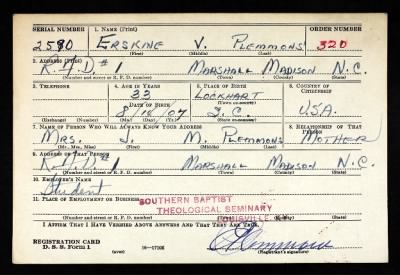 SERIAL NUMBER 1. NAME (Print) ORDER NUMBER
2590 ERSKINE V. PLEMMONS 320
(First) (Middle) (Last)
2. ADDRESS (Print)
R.F.D. # 1 MARSHALL MADISON N.C.
(Number and street or R. F. D. number) (Town) (County) (State)
3. TELEPHONE 4. AGE IN YEARS 5. PLACE OF BIRTH 6. COUNTRY OF CITIZENSHIP
33 LOCKHART
DATE OF BIRTH (Town or county)
8/10/07 S.C. U.S.A.
(Exchange) (No.) (Mo.) (Day) (Yr.) (State or country)
7. NAME OF PERSON WHO WILL ALWAYS KNOW YOUR ADDRESS 8. RELATIONSHIP OF THAT PERSON
MRS. J. M. PLEMMONS MOTHER
(Mr., Mrs., Miss) (First) (Middle) (Last)
9. ADDRESS OF THAT PERSON
1 MARSHALL MADISON N.C.
(Number and street or R. F. D. number) (Town) (County) (State)
10. EMPLOYER'S NAME
Student
11. PLACE OF EMPLOYMENT OR BUSINESS
SOUTHERN BAPTIST
THEOLOGICAL SEMINARY
LOUISVILLE
(Number and street or R. F. D. number) (Town) (County) (State)
I AFFIRM THAT I HAVE VERIFIED ABOVE ANSWERS AND THAT THEY ARE TRUE.
REGISTRATION CARD
D. S. S. Form 1 (over) 16—17106 (Registrant's signature)